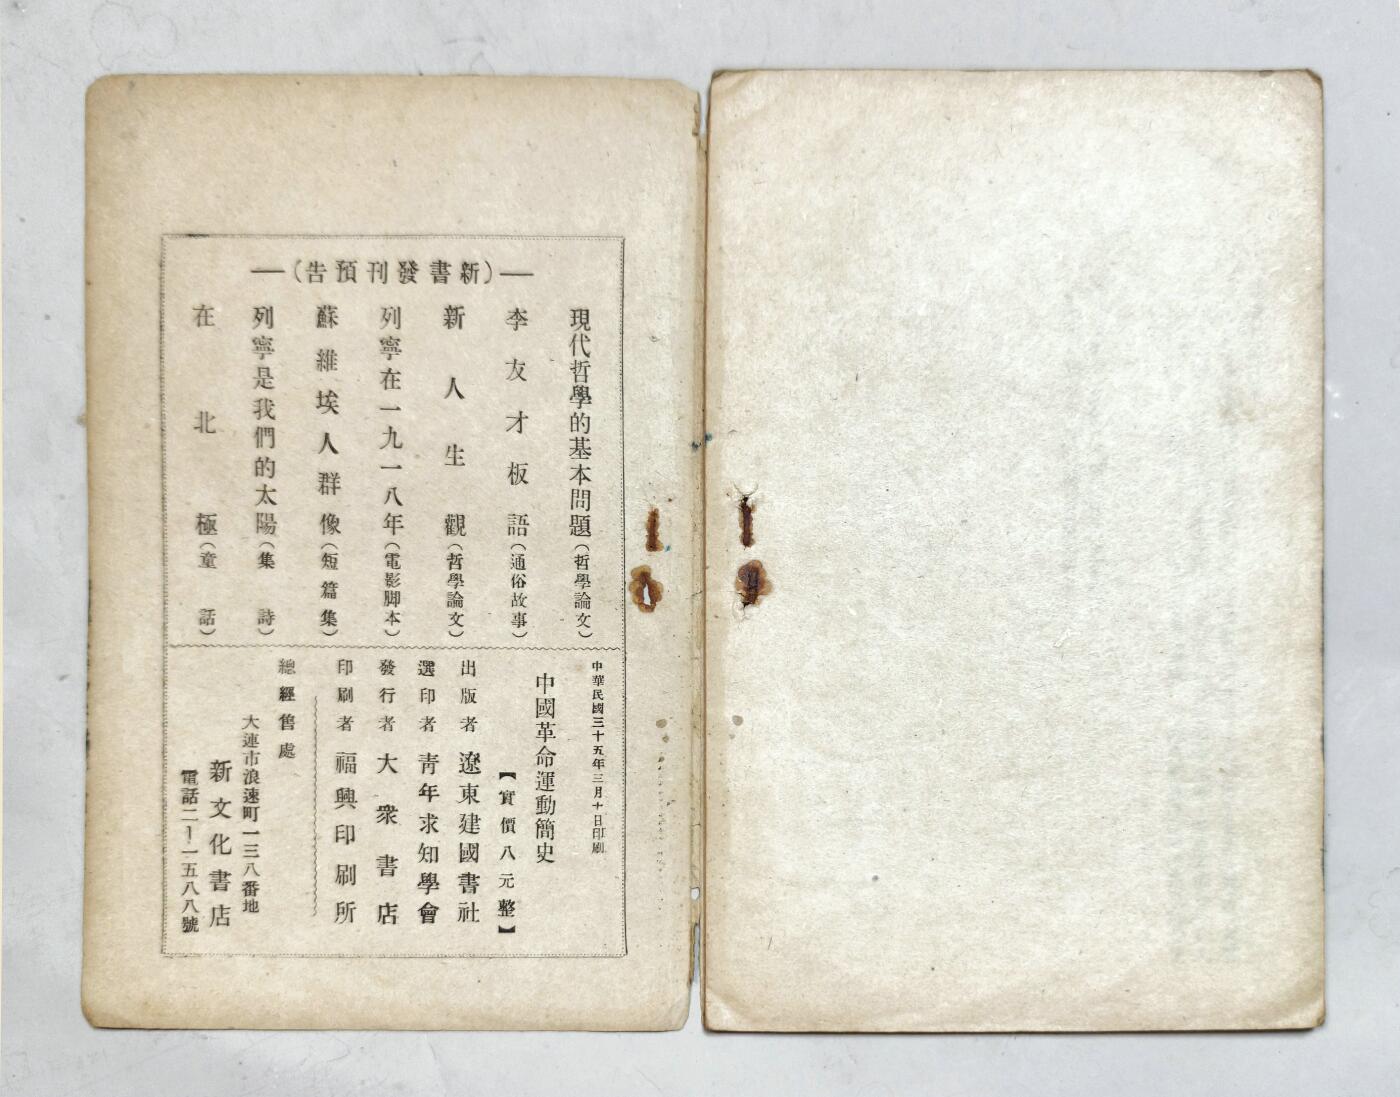 —(新書發刊預告)—
現代哲學的基本問題(哲學論文)
李友才板語(通俗故事)
新人生觀(哲學論文)
列寧在一九一八年(電影脚本)
蘇維埃人群像(短篇集)
列寧是我們的太陽(集詩)
在北極(童話)
中華民國三十五年三月十日印刷
中國革命運動簡史
【實價八元整】
出版者 遼東建國書社
選印者 靑年求知學會
發行者 大衆書店
印刷者 福興印刷所
總經售處
大連市浪速町一三八番地
新文化書店
電話二—一五八八號